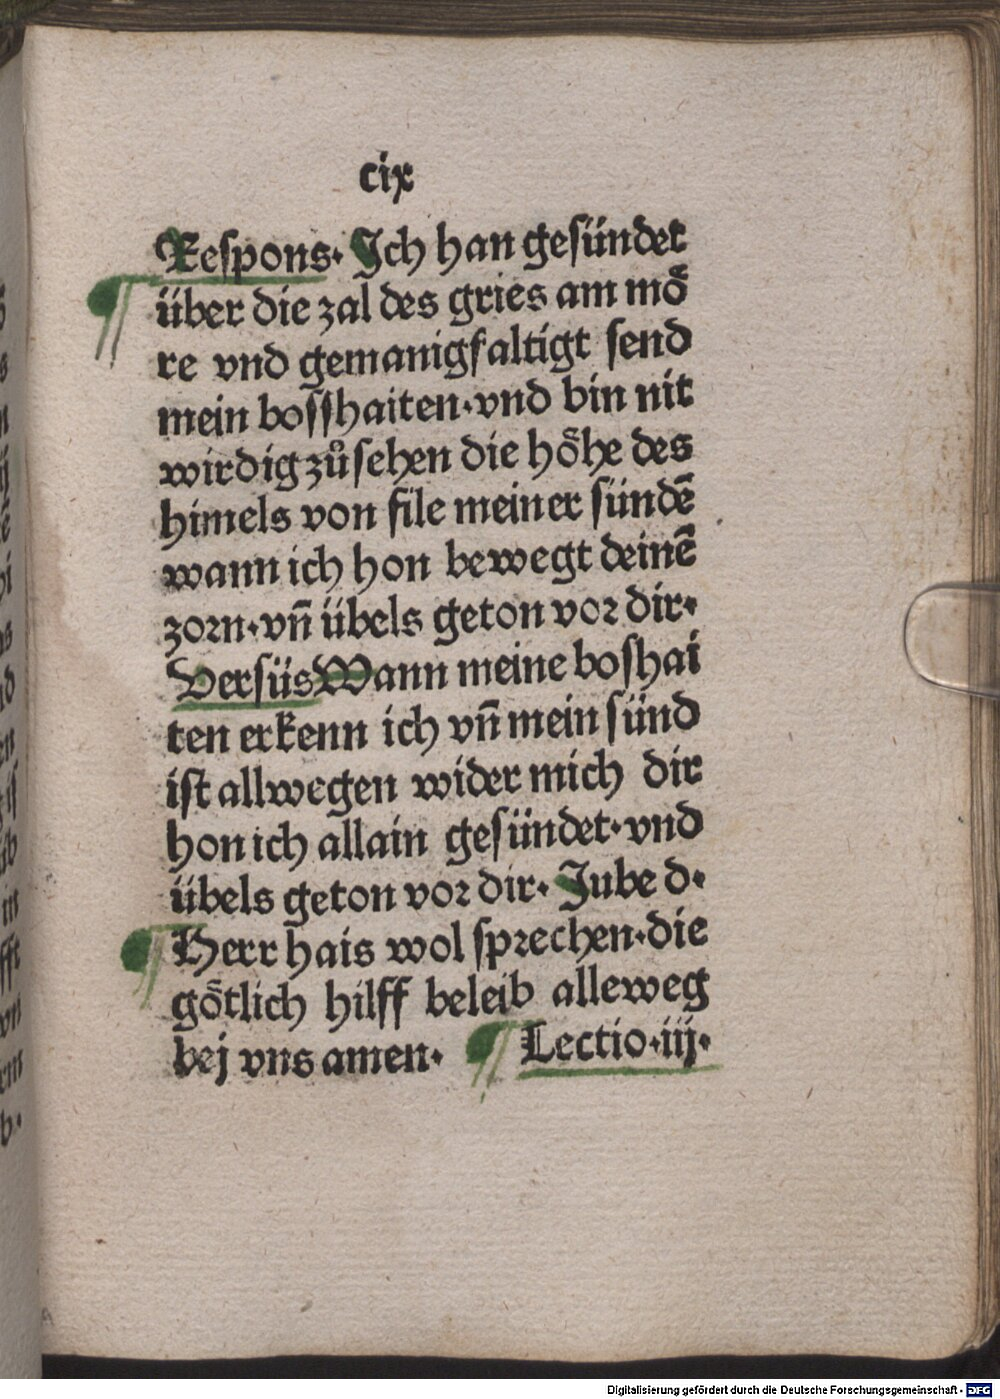 cix
Respons· Ich han gesündet
über die zal des gries am mö
re vnd gemanigfaltigt send
mein bosshaiten·vnd bin nit
wirdig zůsehen die höhe des
himels von file meiner sündē
wann ich hon bewegt deinē
zorn·vn̄ übels geton vor dir·
Versüs Wann meine boshai
ten erkenn ich vn̄ mein sünd
ist allwegen wider mich dir
hon ich allain gesündet·vnd
übels geton vor dir· Jube d·
Herr hais wol sprechen·die
götlich hilff beleib alleweg
bej vns amen· Lectio·iij·
Digitalisierung gefördert durch die Deutsche Forschungsgemeinschaft - DFG